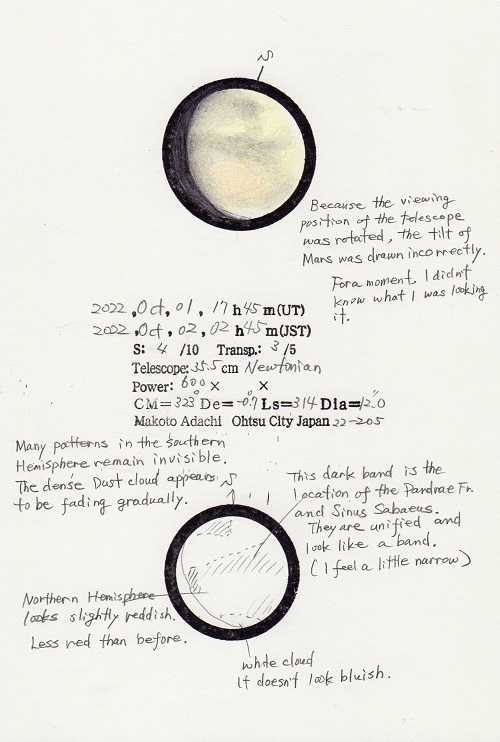 S
Because the viewing
position of the telescope
was rotated, the tilt of
Mars was drawn incorrectly.
For a moment, I didn't
know what I was looking
it.
2022, Oct, 01, 17 h 45 m (UT)
2022, Oct, 02, 02 h 45 m (JST)
S: 4 /10 Transp.: 3 /5
Telescope: 35.5 cm Newtonian
Power: 600 × ×
CM= 323° De= -0.7° Ls= 314 Dia= 12".0
Makoto Adachi Ohtsu City Japan 22-205
Many patterns in the southern
Hemisphere remain invisible.
The dense Dust cloud appears
to be fading gradually.
S
This dark band is the
location of the Pandrae Fr.
and Sinus Sabaeus.
They are unified and
look like a band.
(I feel a little narrow)
Northern Hemisphere
looks slightly reddish.
Less red than before.
white cloud
It doesn't look bluish.